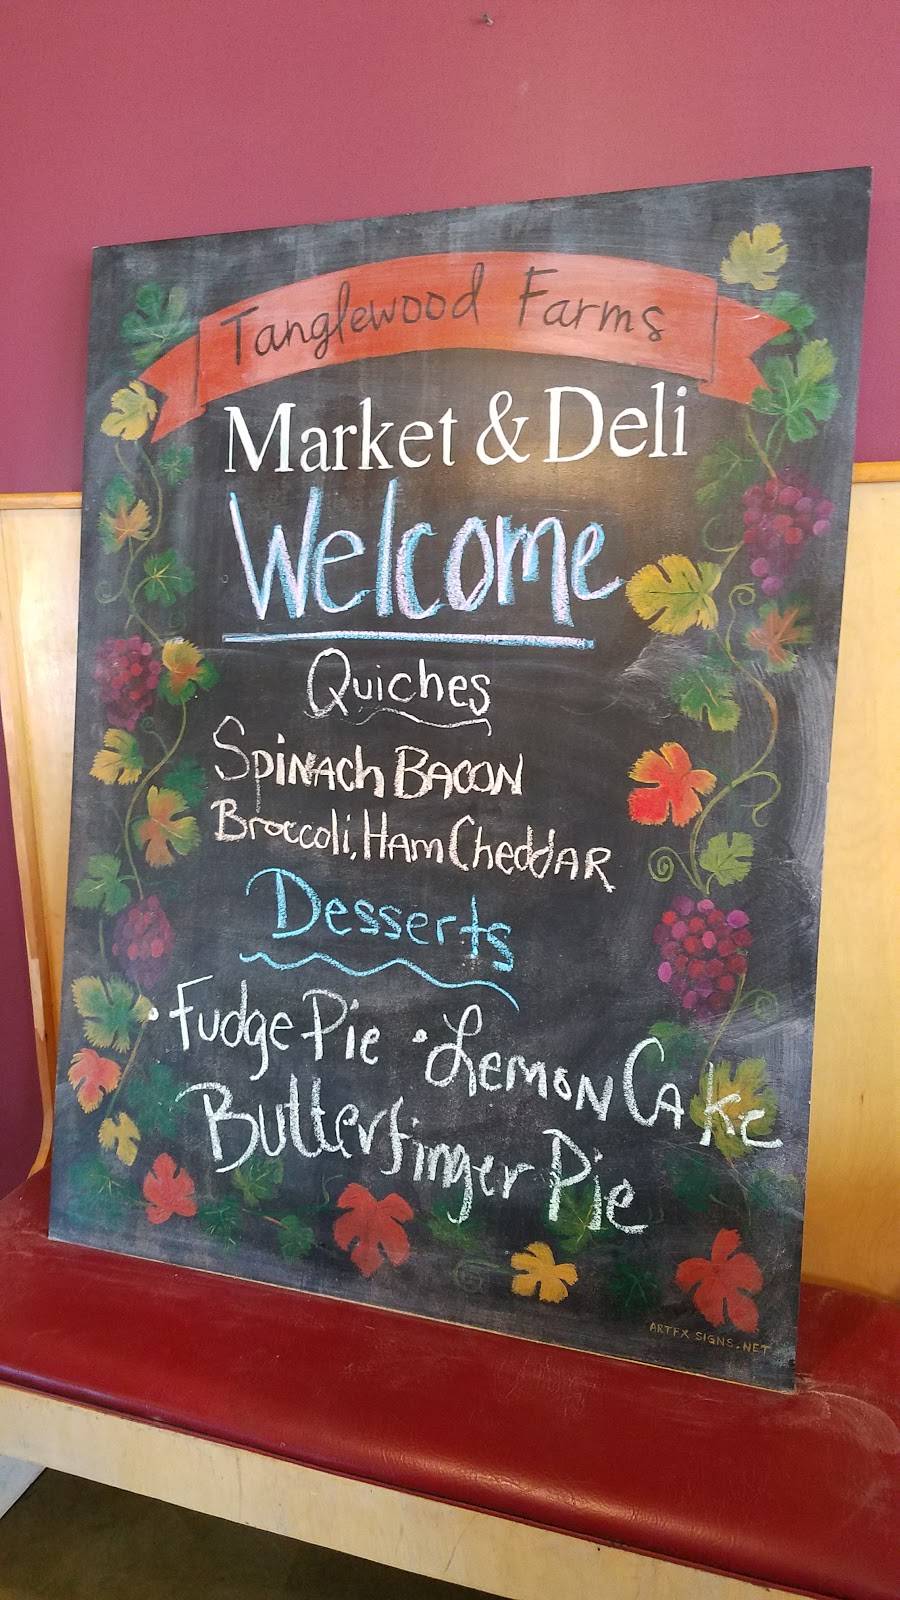 Tanglewood Farms
Market & Deli
Welcome
Quiches
Spinach Bacon
Broccoli, Ham Cheddar
Desserts
• Fudge Pie • Lemon Cake
Butterfinger Pie
ARTFX SIGNS.NET